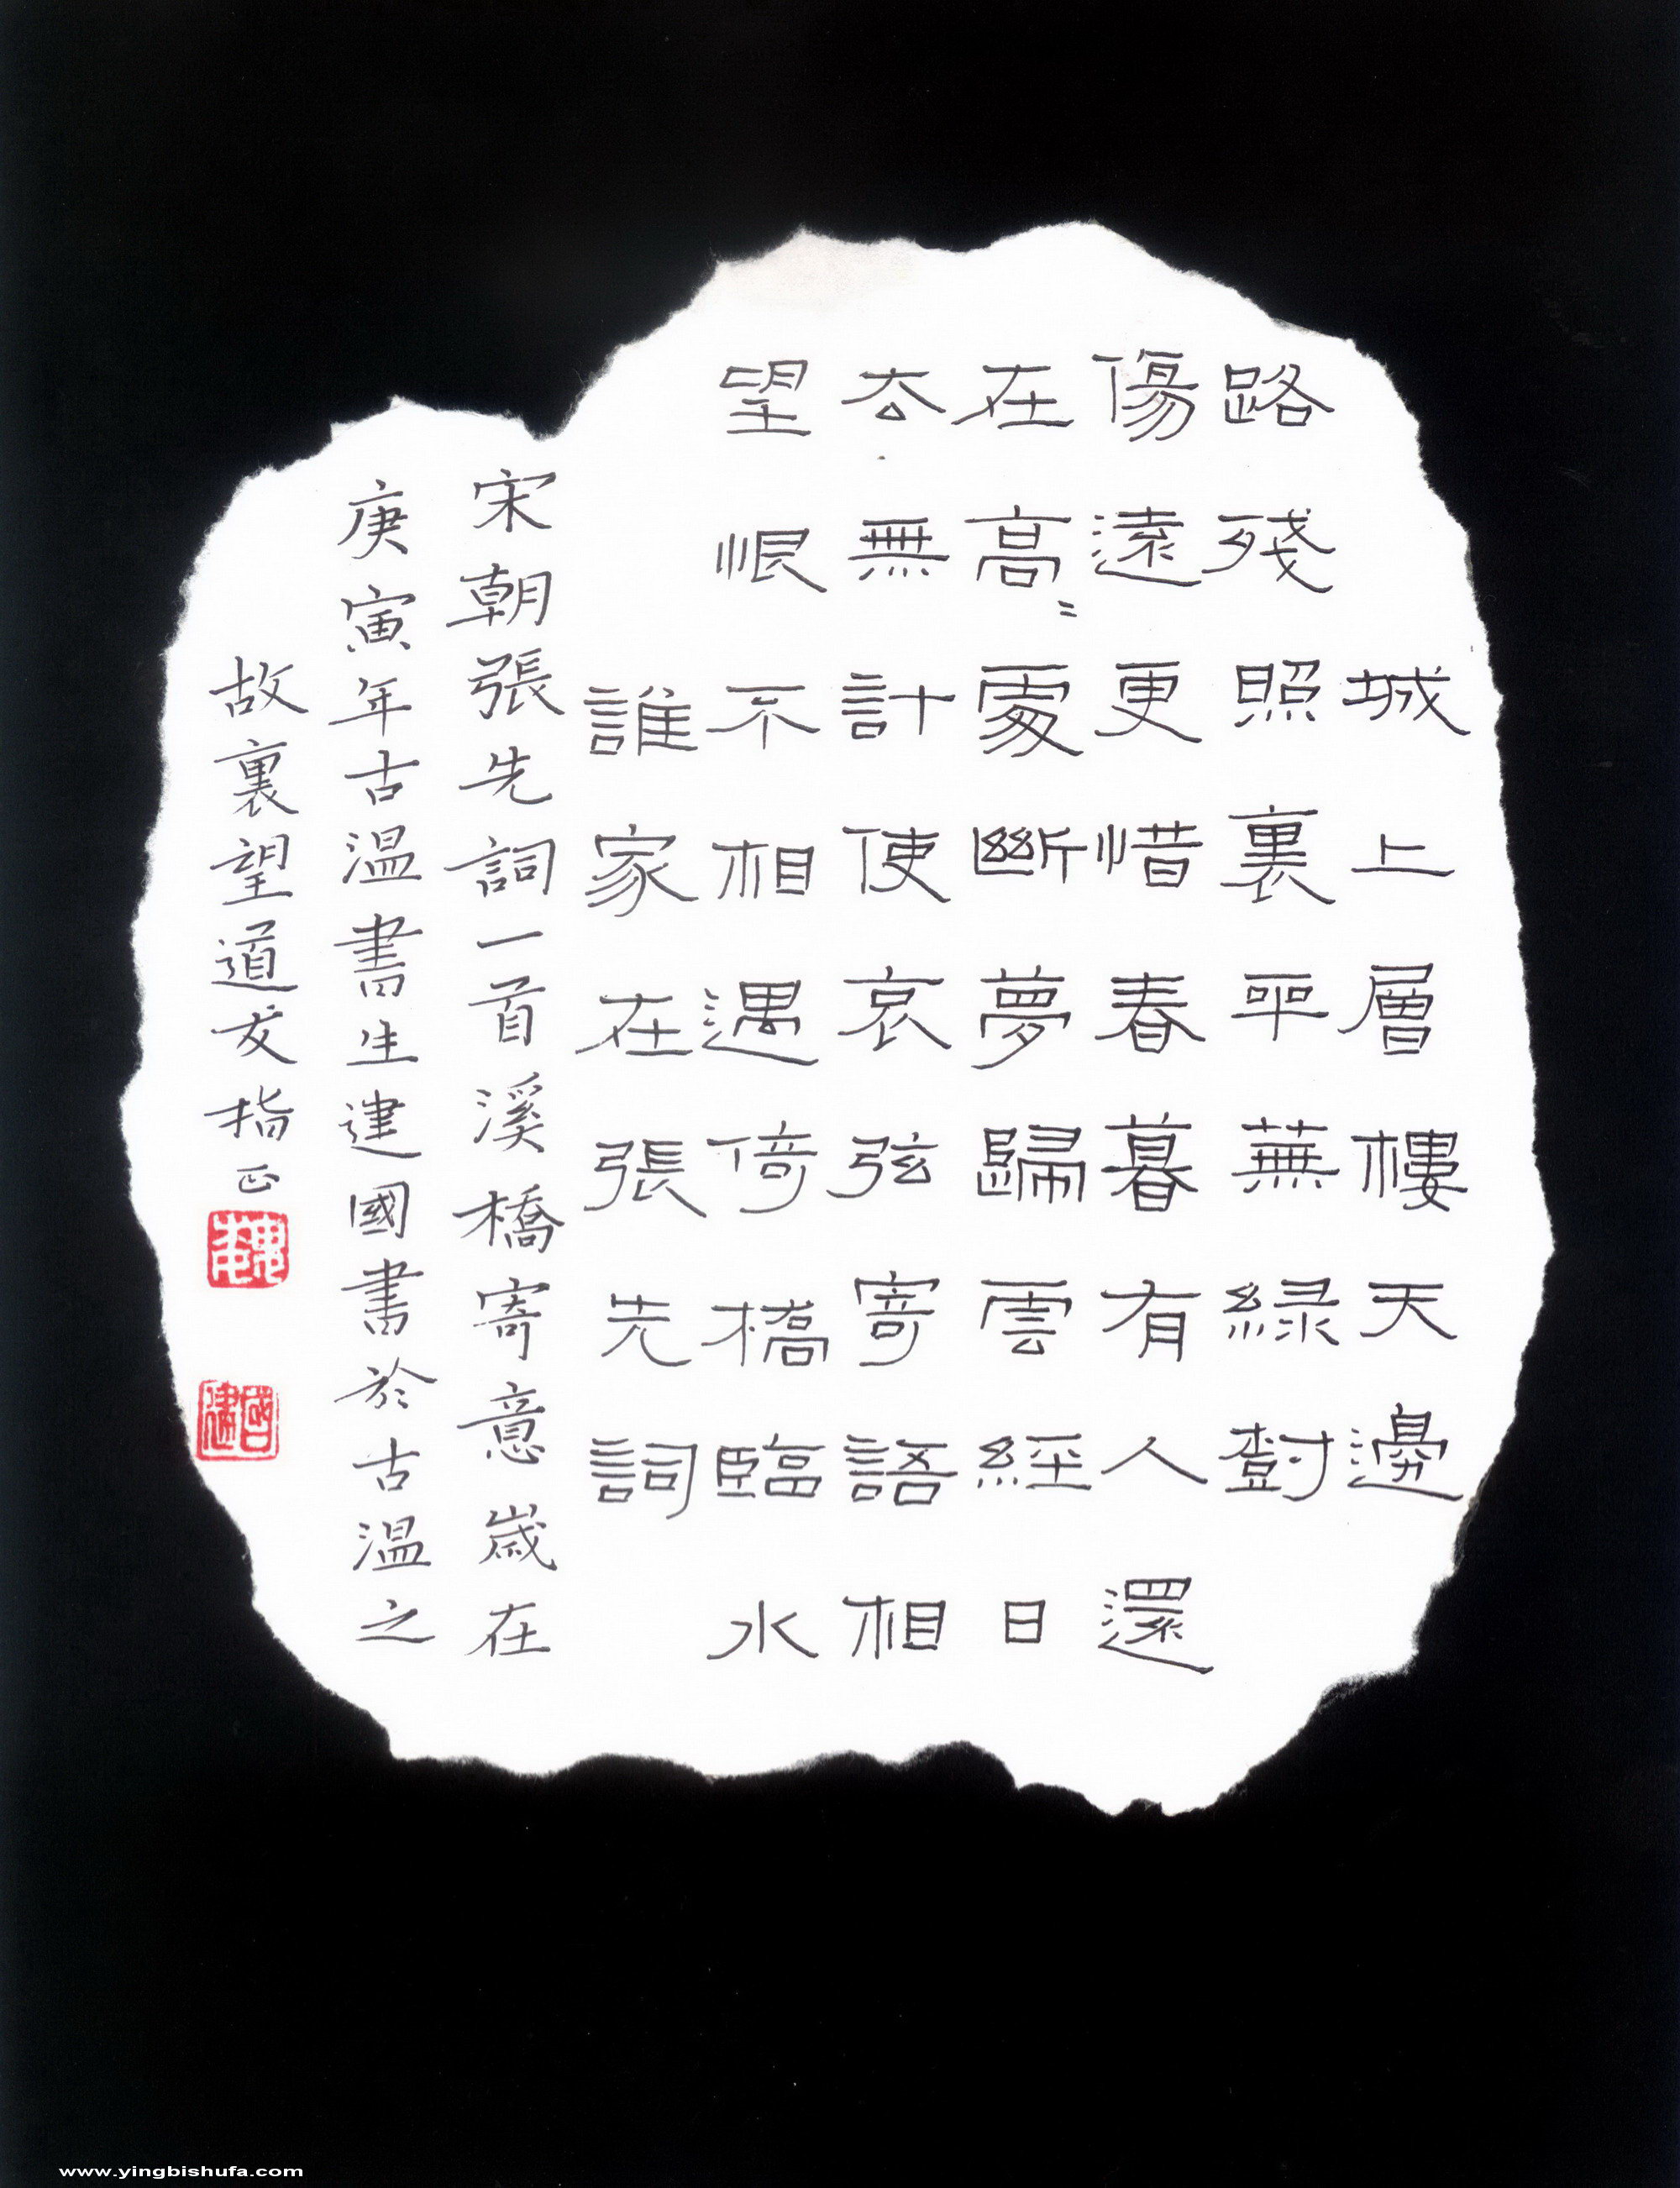 城上層樓天邊
路殘照裏平蕪綠樹
傷遠更惜春暮有人還
在高〻處斷夢歸雲經日
去無計使哀弦寄語相
望恨不相遇倚橋臨水
誰家在張先詞
宋朝張先詞一首溪橋寄意歲在
庚寅年古溫書生建國書於古溫之
故裏望道友指正
國建
www.yingbishufa.com